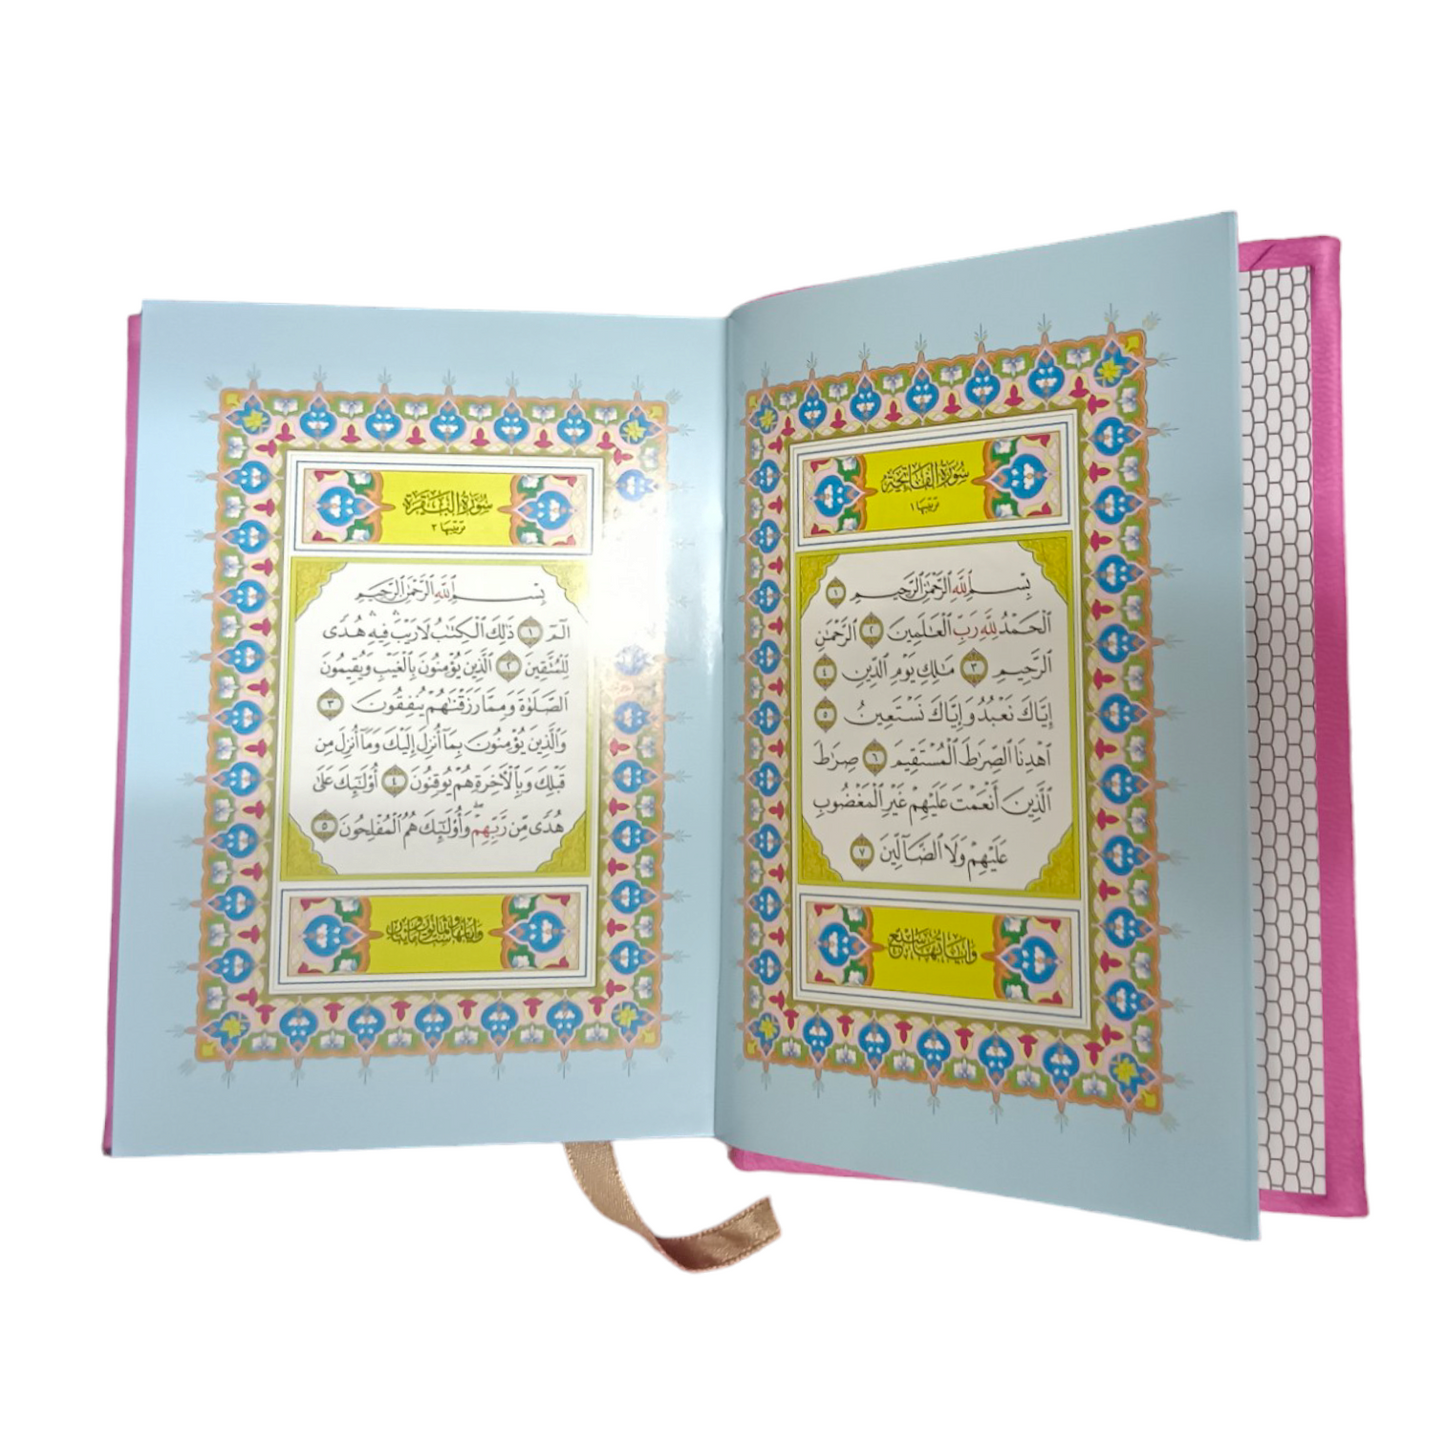 سُورَةُ الفَاتِحَةِ
ترتيبها ١
بِسْمِ ٱللَّهِ ٱلرَّحْمَٰنِ ٱلرَّحِيمِ ١
ٱلْحَمْدُ لِلَّهِ رَبِّ ٱلْعَٰلَمِينَ ٢ ٱلرَّحْمَٰنِ
ٱلرَّحِيمِ ٣ مَٰلِكِ يَوْمِ ٱلدِّينِ ٤
إِيَّاكَ نَعْبُدُ وَإِيَّاكَ نَسْتَعِينُ ٥
ٱهْدِنَا ٱلصِّرَٰطَ ٱلْمُسْتَقِيمَ ٦ صِرَٰطَ
ٱلَّذِينَ أَنْعَمْتَ عَلَيْهِمْ غَيْرِ ٱلْمَغْضُوبِ
عَلَيْهِمْ وَلَا ٱلضَّآلِّينَ ٧
وآياتها سبع
سُورَةُ البَقَرَةِ
ترتيبها ٢
بِسْمِ ٱللَّهِ ٱلرَّحْمَٰنِ ٱلرَّحِيمِ
الٓمٓ ١ ذَٰلِكَ ٱلْكِتَٰبُ لَا رَيْبَۛ فِيهِۛ هُدًى
لِّلْمُتَّقِينَ ٢ ٱلَّذِينَ يُؤْمِنُونَ بِٱلْغَيْبِ وَيُقِيمُونَ
ٱلصَّلَوٰةَ وَمِمَّا رَزَقْنَٰهُمْ يُنفِقُونَ ٣
وَٱلَّذِينَ يُؤْمِنُونَ بِمَآ أُنزِلَ إِلَيْكَ وَمَآ أُنزِلَ مِن
قَبْلِكَ وَبِٱلْءَاخِرَةِ هُمْ يُوقِنُونَ ٤ أُو۟لَٰٓئِكَ عَلَىٰ
هُدًى مِّن رَّبِّهِمْۖ وَأُو۟لَٰٓئِكَ هُمُ ٱلْمُفْلِحُونَ ٥
وآياتها ست وثمانون ومائتان